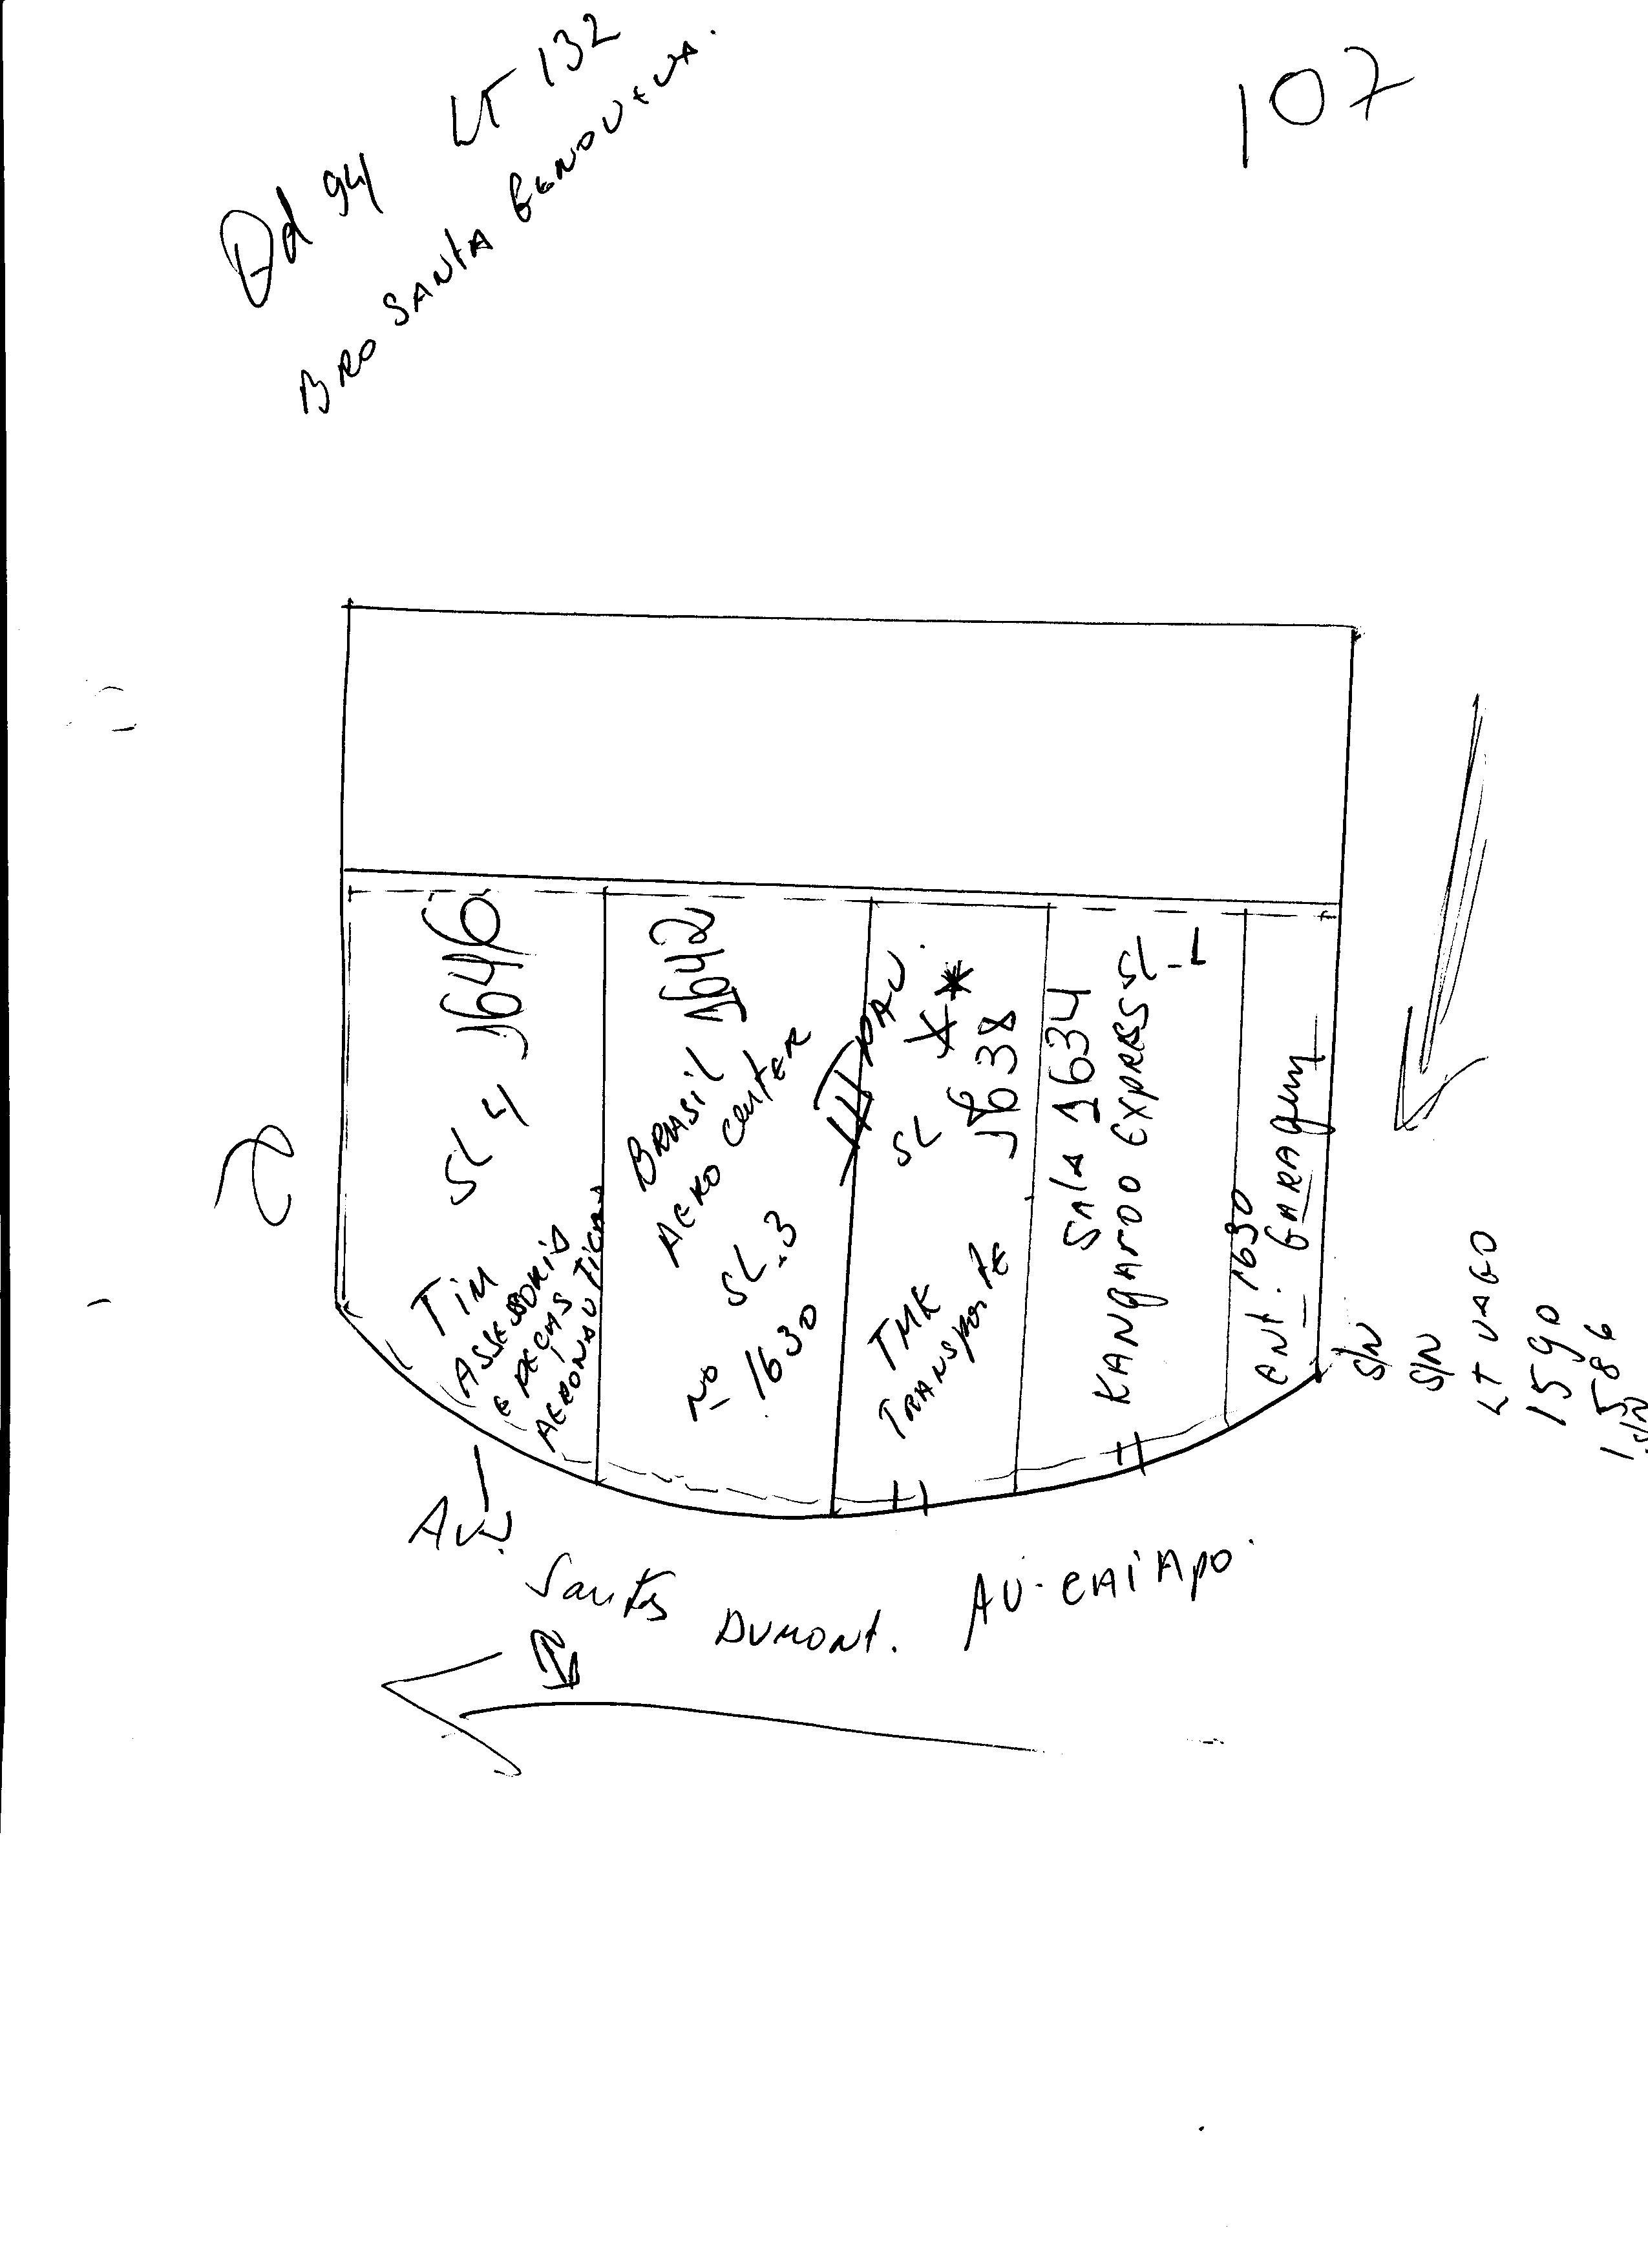 107
Qd 94 LT 132
BRO SANTA GENOVEVA.
1646
SL 4
TIM
ASSESSORIA
E PEÇAS
AERONAUTICAS
1642
BRASIL
AERO CENTER
SL.3
Nº 1630
SL
1638
TMK
TRANSPORTE
SALA 1634
KANGAROO EXPRESS SL-1
1630
ENT. GARAGEM
S/N
S/N
LT VAGO
1590
1586
S/N
AV.
Santos DUMONT. AV. CAIAPO.